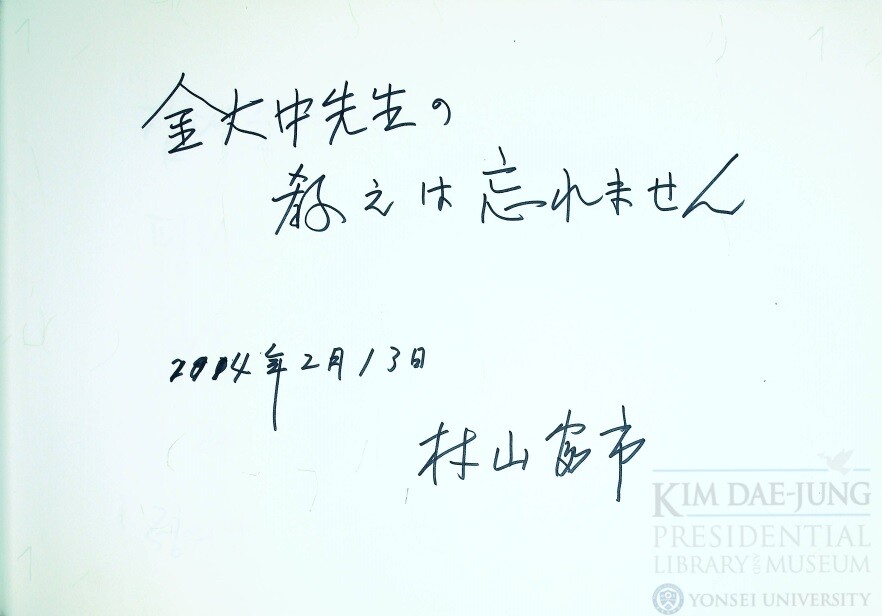 金大中先生の
教えは忘れません
2014年2月13日
村山富市
KIM DAE-JUNG
PRESIDENTIAL
LIBRARY AND MUSEUM
YONSEI UNIVERSITY